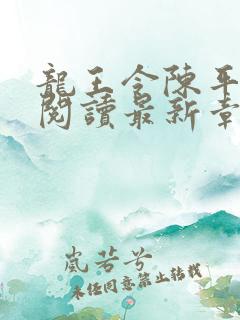 龍王令陳平
閱讀最新章
嵐芳兮
未經同意禁止轉載